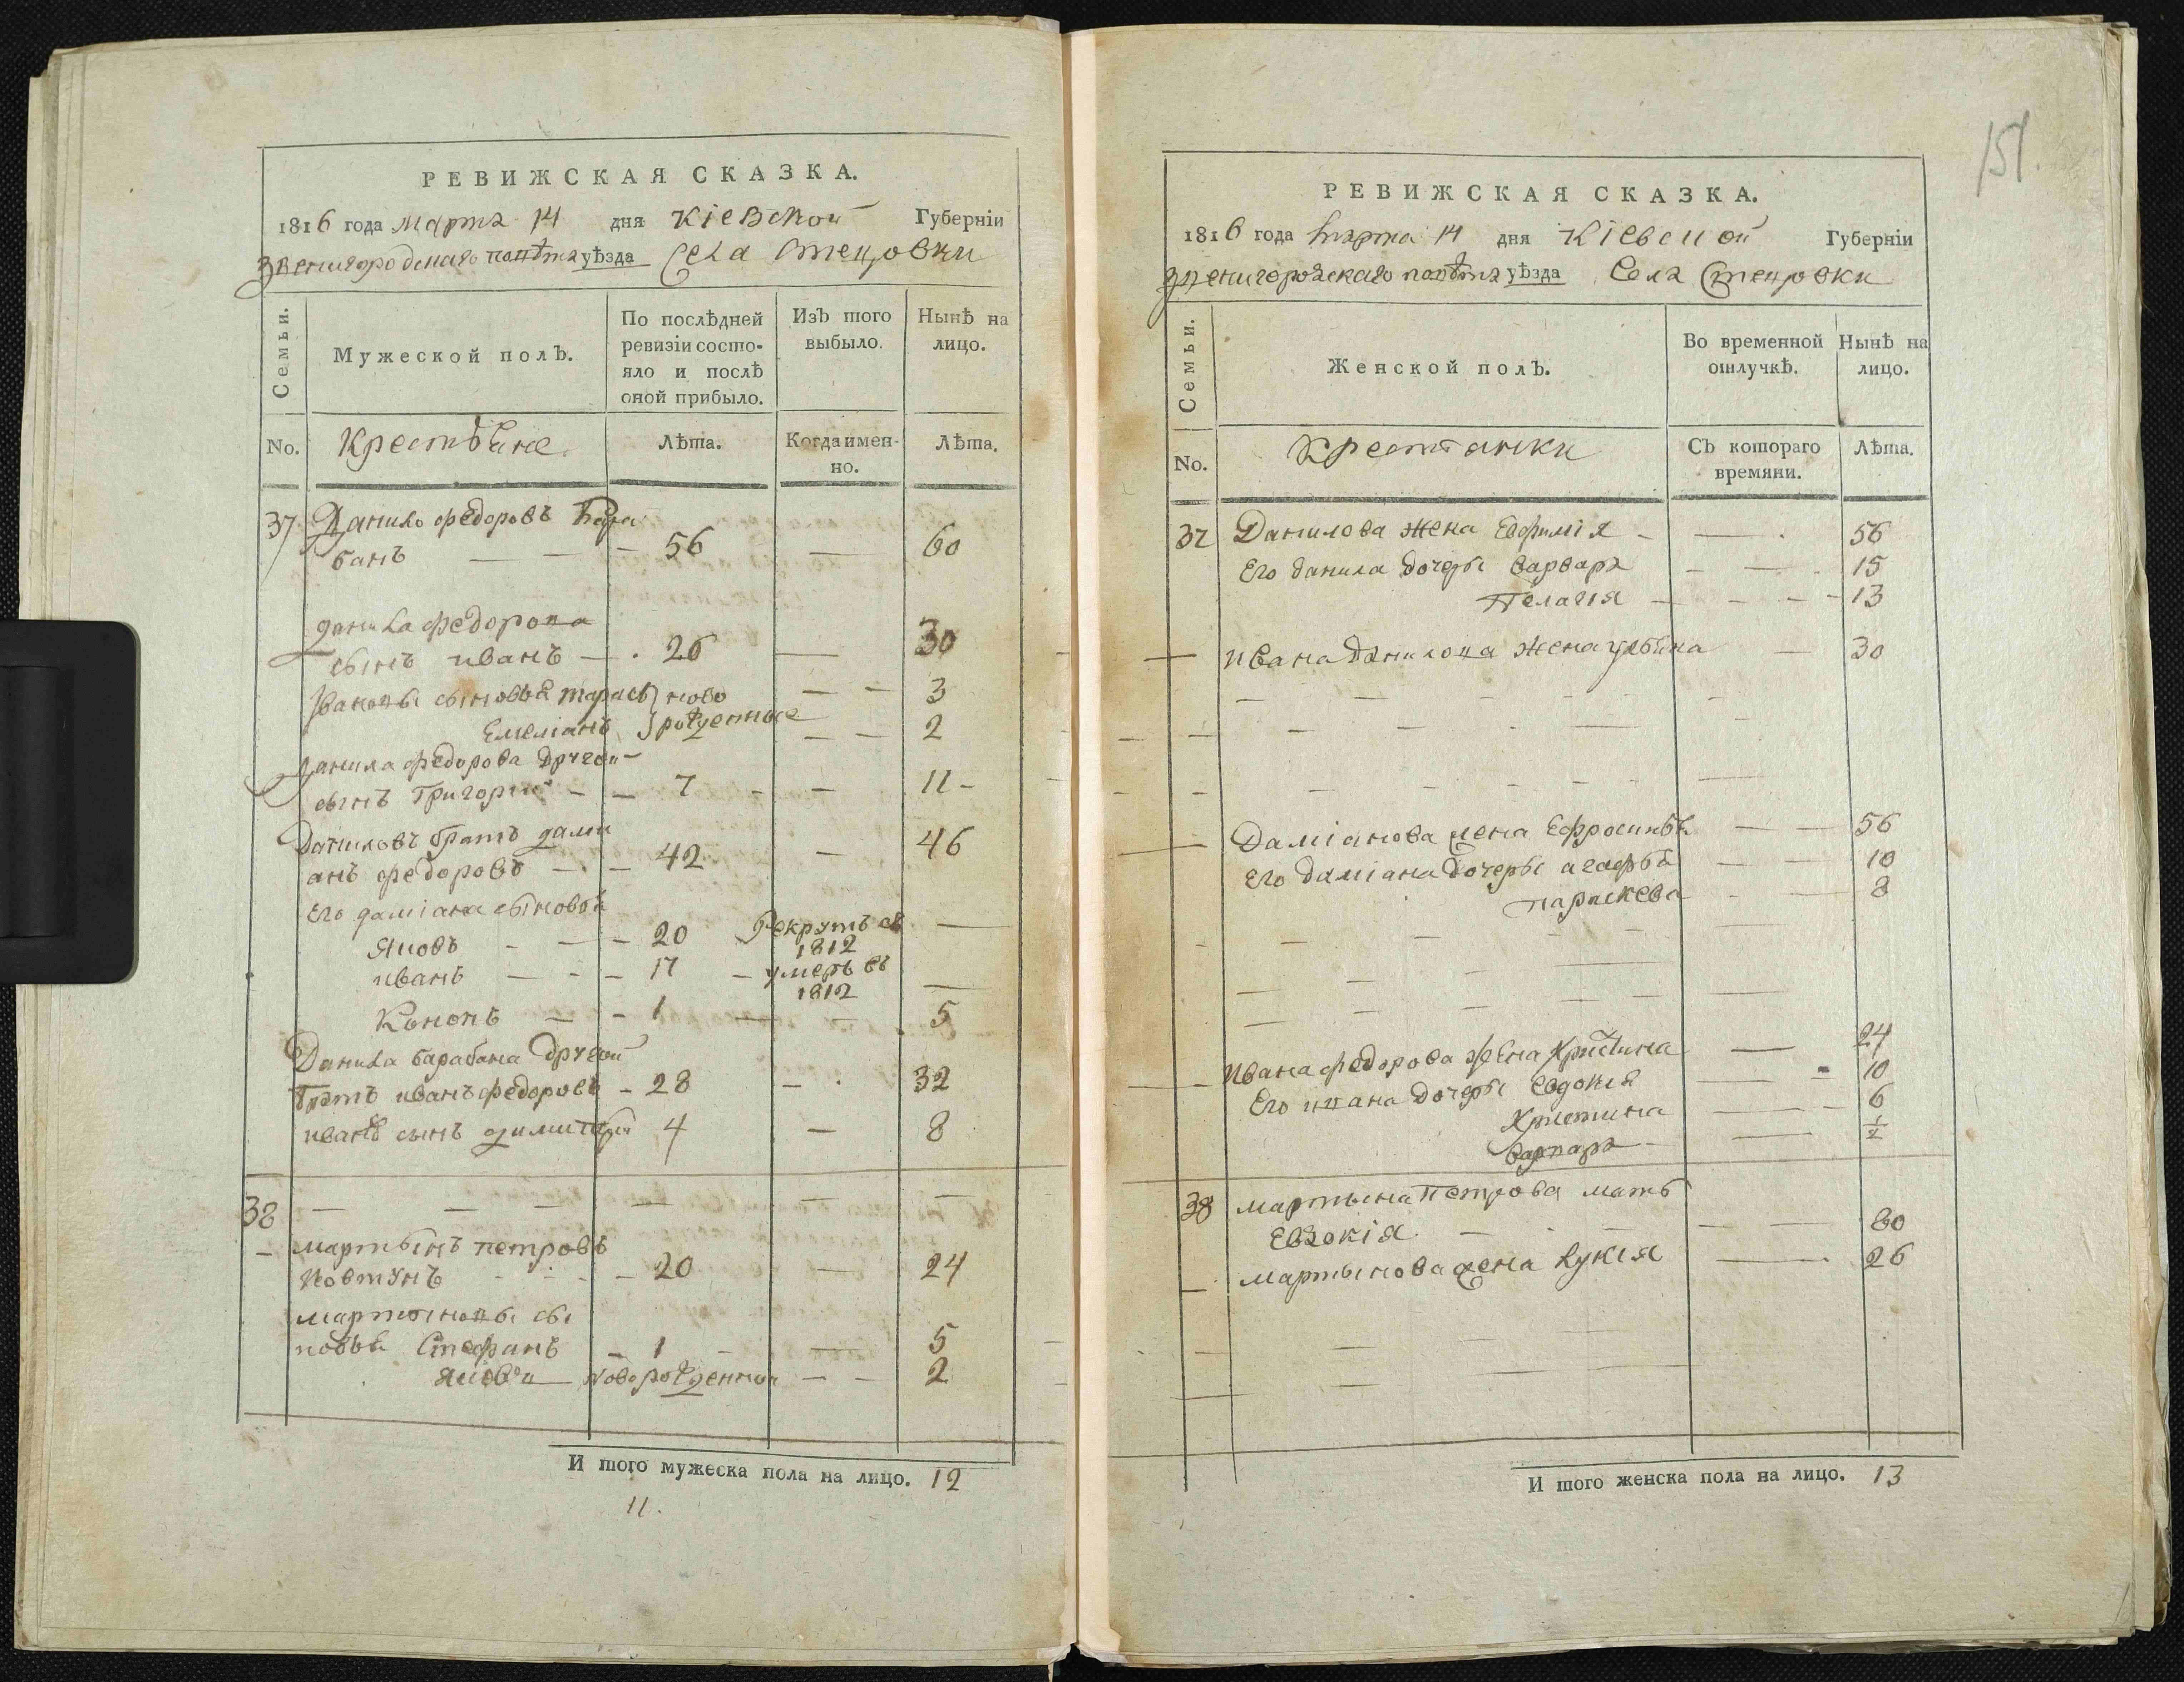 РЕВИЖСКАЯ СКАЗКА.
1816 года Марта 14 дня Кіевской Губерніи
Звенигородскаго повѣта уѣзда Села Стецовки
Семьи.
Мужеской полъ.
По послѣдней ревизіи состояло и послѣ оной прибыло.
Изъ того выбыло.
Нынѣ на лицо.
No. Крестьяне Лѣта. Когда имен-но. Лѣта.
37 Данило федоровъ Бара
банъ — 56 — 60
Данила федорова
сынъ иванъ — 26 — 30
Ивановы сыновья тарасъ ново — — 3
Емеліанъ рожденные — — 2
Данила федорова другой
сынъ Григорій — — 7 - — 11 -
Даниловъ братъ дами
анъ федоровъ — — 42 — 46
Его даміана сыновья
Яковъ - — — 20 Рекрутъ въ —
1812
иванъ — - — 17 — умеръ въ
1812 —
Кононъ — - 1 — — 5
Данила барабана другой
братъ иванъ федоровъ - 28 - . 32
иванъ сынъ димитрій 4 — 8
38 — — — — — —
— мартынъ петровъ
Ковтунъ - - - — 20 — 24
мартыновы сы
новья Стефанъ — 1 — — 5
Яковъ — новорожденный — — 2
И того мужеска пола на лицо. 12
11.
151.
РЕВИЖСКАЯ СКАЗКА.
1816 года Марта 14 дня Кіевской Губерніи
Звенигородскаго повѣта уѣзда Села Стецовки
Семьи.
Женской полъ.
Во временной отлучкѣ.
Нынѣ на лицо.
No. Крестьянки Съ котораго времяни. Лѣта.
37 Данилова жена Евфимія - — . 56
Его данила дочеры варвара - — . 15
Пелагія — - - - 13
— ивана данилова жена ульяна — 30
Даміанова жена Ефросинья — — 56
Его даміана дочеры агафья — — 10
параскева - — 8
ивана федорова жена Христина — 24
Его ивана дочеры Евдокия — - 10
Христина — — 6
варвара — — 1/2
38 мартына петрова мать
Евдокія. — - — — — 80
— мартынова жена Лукия — 26
И того женска пола на лицо. 13